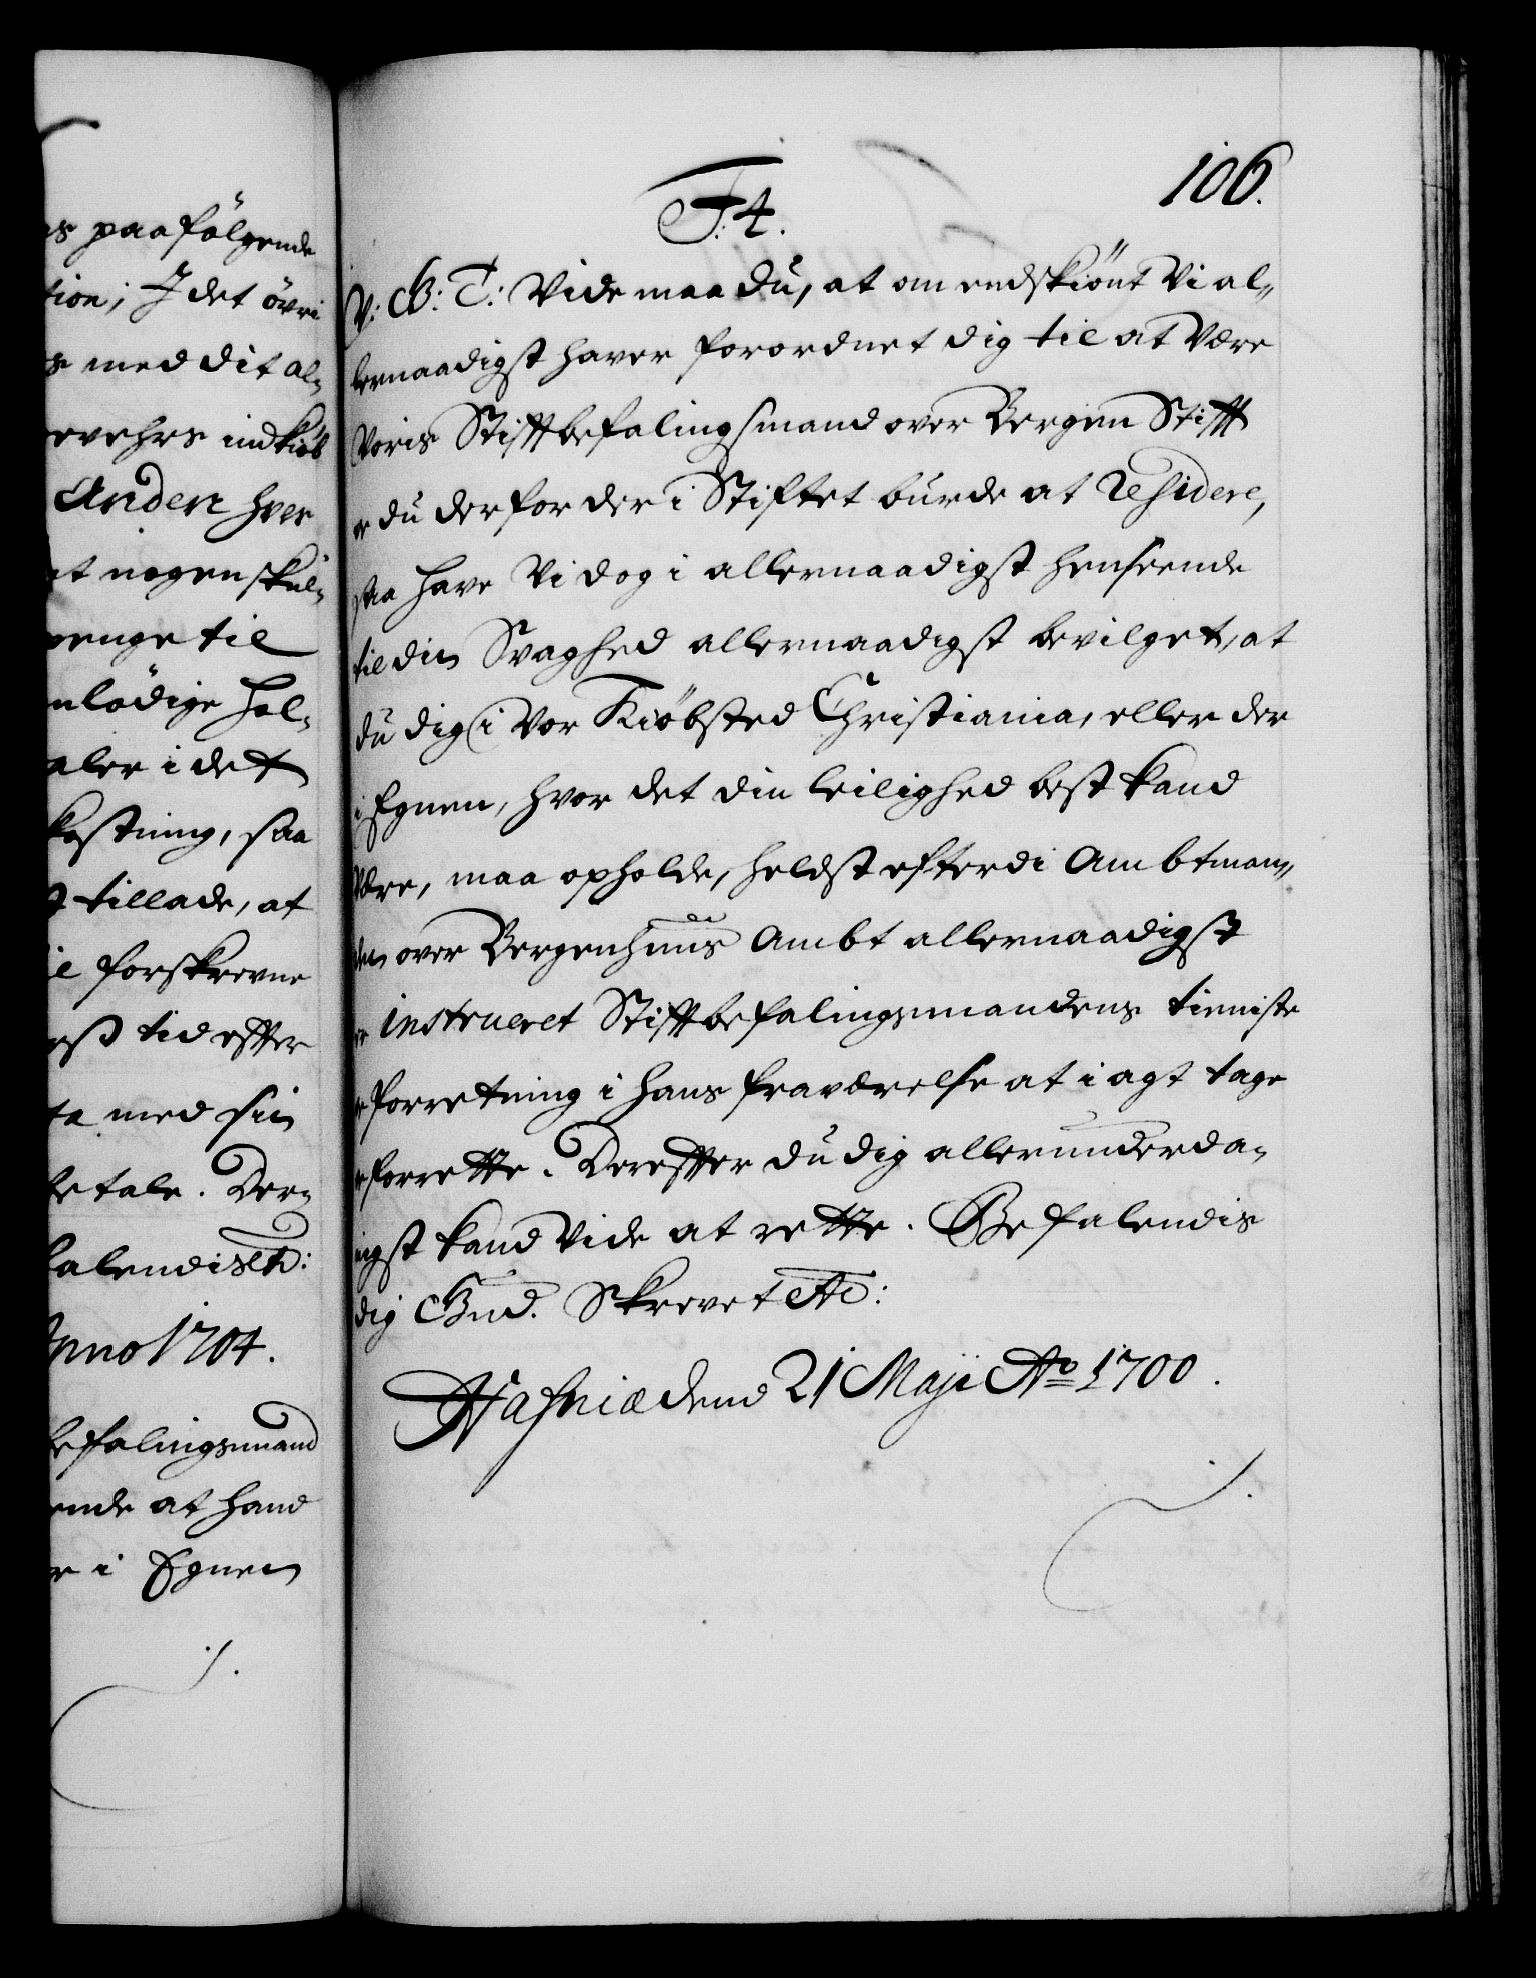 paa følgende
tion; J det övri
med dit al-
gevehrs indkiøb
Anden hver
at nogen skul-
penge til
nlødige hol-
aler i det
kostning, saa
tillade, at
forskrevne
tid effter
med sin
betale. Der-
falendis etc:
Anno 1704.
befalingsmand
ende at hand
i Egnen
106.
F: 4.
V: G: T: Vide maa du, at om endskiønt Vi al-
lernaadigst haver forordnet dig til at Være
Voris Stifftbefalingsmand over Bergen Stifft
oc du derfor der i Stiftet burde at residere,
saa have Vi dog i allernaadigst henseende
til din Svaghed allernaadigst bevilget, at
du dig i Vor Kiøbsted Christiania, eller der
i Egnen, hvor det din leilighed best kand
Være, maa opholde, heldst efterdi Ambtman-
den over Bergenhuus Ambt allernaadigst
er instrueret Stifftbefalingsmandens tienniste
forretning i hans fraværelse at i agt tage
forrette. Dereffter du dig allerunderda-
nigst kand Vide at rette. Befalendis
dig Gud. Skrevet etc:
Hafniæ dend 21 Maji Ao 1700.